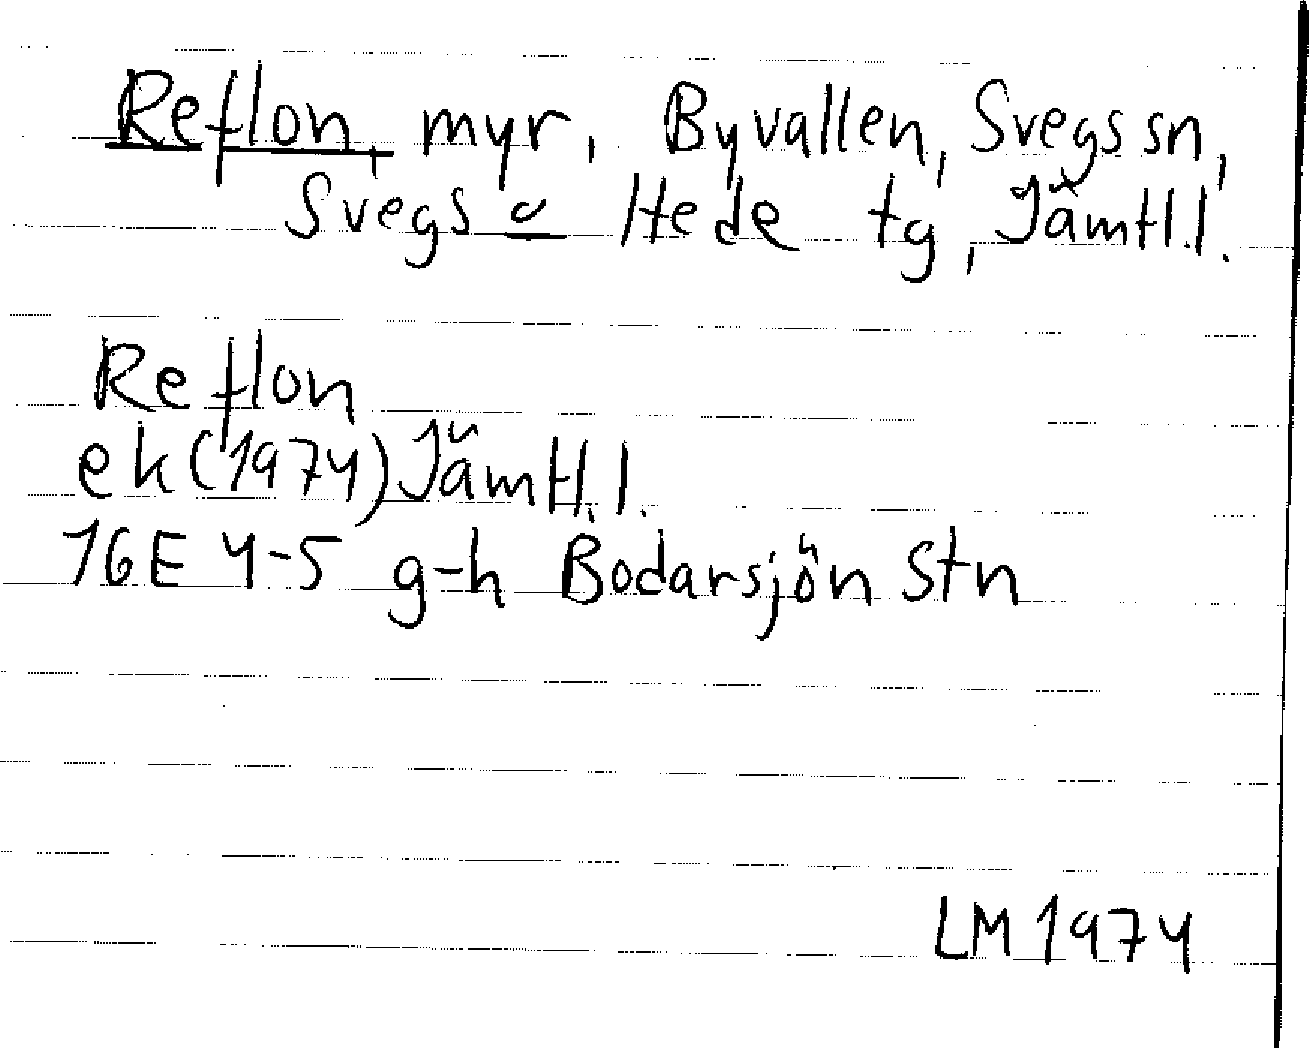 Reflon, myr, Byvallen, Svegs sn,
Svegs o Hede tg, Jämtl.l.
Reflon
ek (1974) Jämtl. l.
16E 4-5 g-h Bodarsjön Stn
LM 1974